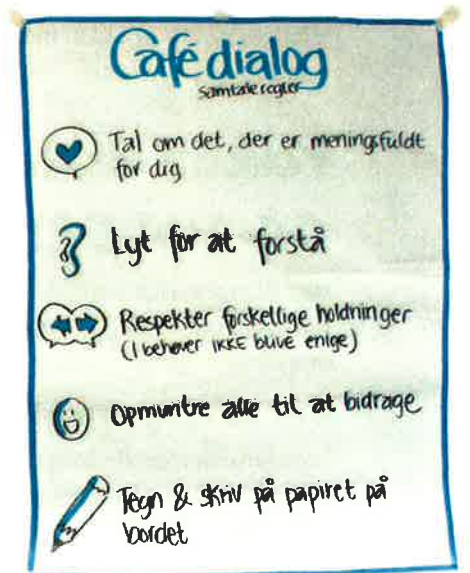 Café dialog
samtaleregler
Tal om det, der er meningsfuldt
for dig
Lyt for at forstå
Respekter forskellige holdninger
(I behøver IKKE blive enige)
Opmuntre alle til at bidrage
Tegn & skriv på papiret på
bordet